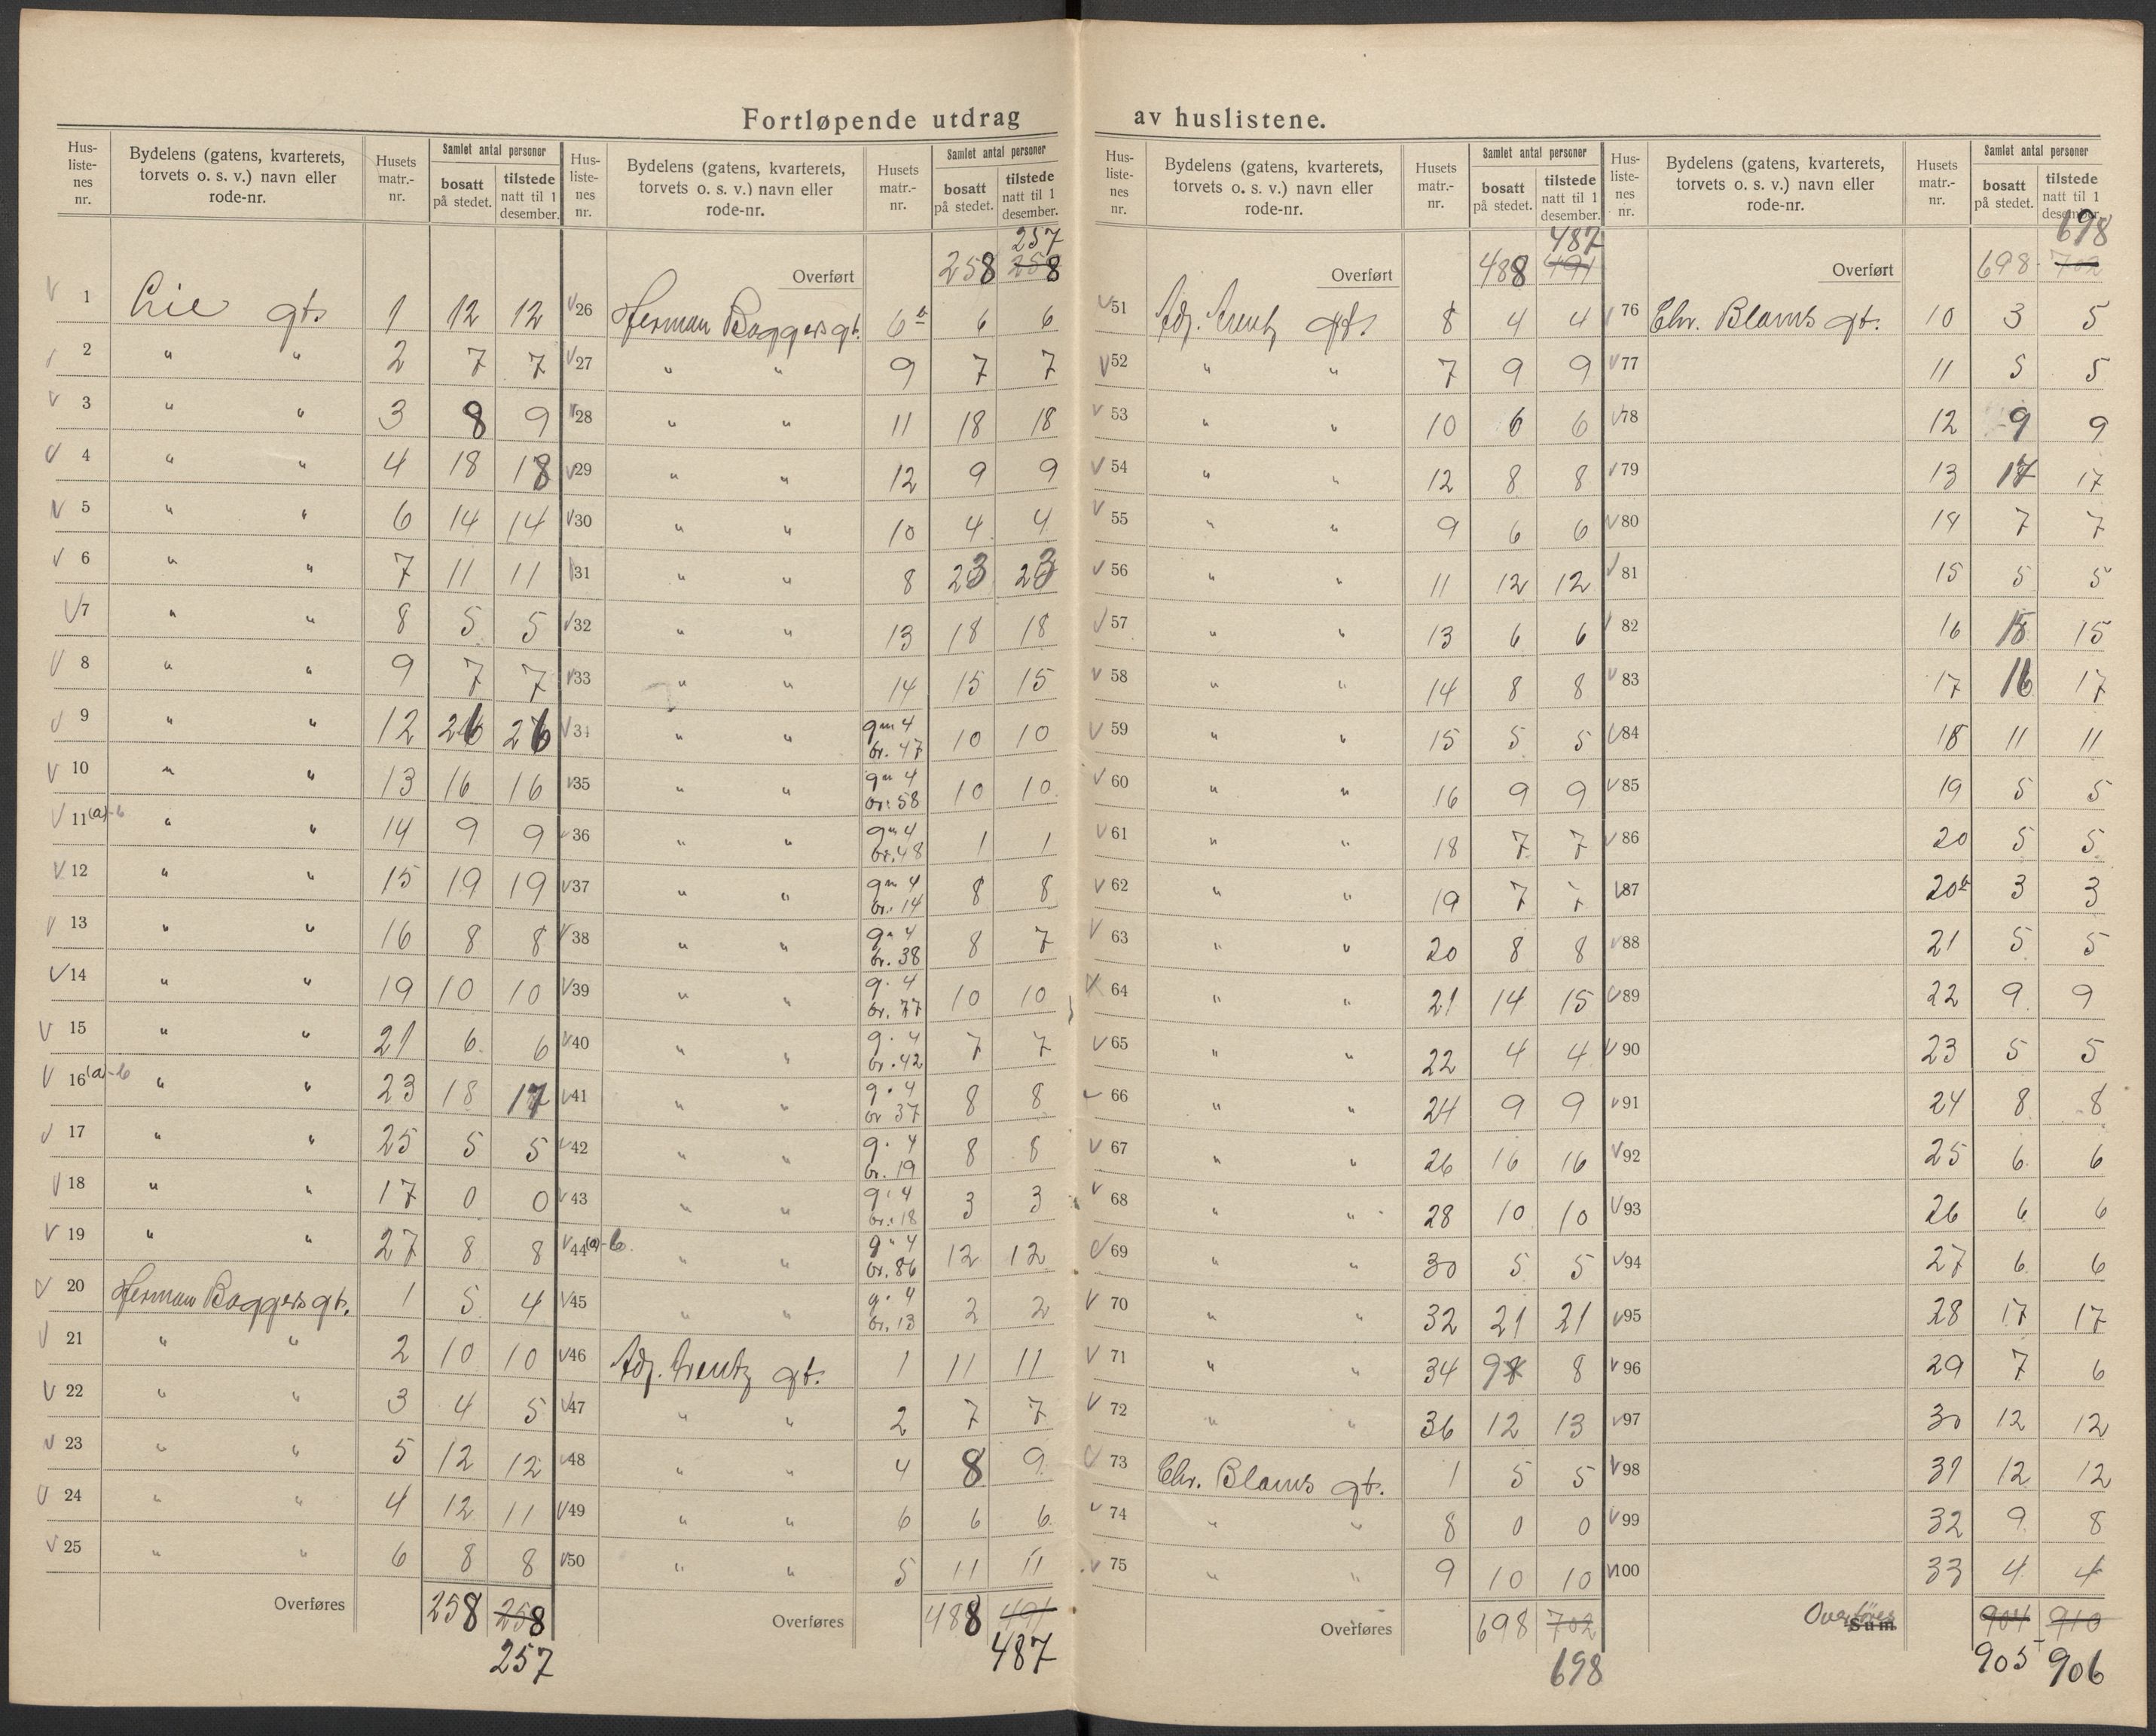 Fortløpende utdrag av huslistene.
Hus-liste-nes nr. | Bydelens (gatens, kvarterets, torvets o. s. v.) navn eller rode-nr. | Husets matr.-nr. | Samlet antal personer | bosatt på stedet. | tilstede natt til 1 desember.
1 Lie gt. 1 12 12
2 " " 2 7 7
3 " " 3 8 9
4 " " 4 18 18
5 " " 6 14 14
6 " " 7 11 11
7 " " 8 5 5
8 " " 9 7 7
9 " " 12 26 26
10 " " 13 16 16
11 (a)-b " " 14 9 9
12 " " 15 19 19
13 " " 16 8 8
14 " " 19 10 10
15 " " 21 6 6
16 (a)-b " " 23 18 17
17 " " 25 5 5
18 " " 17 0 0
19 " " 27 8 8
20 Herman Baggers gt. 1 5 4
21 " " 2 10 10
22 " " 3 4 5
23 " " 5 12 12
24 " " 4 12 11
25 " " 6 8 8
Overføres 258 258
257
Hus-liste-nes nr. | Bydelens (gatens, kvarterets, torvets o. s. v.) navn eller rode-nr. | Husets matr.-nr. | Samlet antal personer | bosatt på stedet. | tilstede natt til 1 desember.
257
Overført 258 258
26 Herman Baggers gt. 6b 6 6
27 " " 9 7 7
28 " " 11 18 18
29 " " 12 9 9
30 " " 10 4 4
31 " " 8 23 23
32 " " 13 18 18
33 " " 14 15 15
34 " " gn 4 br. 47 10 10
35 " " gn 4 br. 58 10 10
36 " " gn 4 br. 48 1 1
37 " " gn 4 br. 14 8 8
38 " " gn 4 br. 38 8 7
39 " " g. 4 br. 77 10 10
40 " " g. 4 br. 42 7 7
41 " " g. 4 br 37 8 8
42 " " g. 4 br. 19 8 8
43 " " g. 4 br. 18 3 3
44 (a)-b. " " g. 4 br. 86 12 12
45 " " g. 4 br. 13 2 2
46 Adj. Arentz gt. 1 11 11
47 " " 2 7 7
48 " " 4 8 9
49 " " 6 6 6
50 " " 5 11 11
Overføres 488 491
487
Hus-liste-nes nr. | Bydelens (gatens, kvarterets, torvets o. s. v.) navn eller rode-nr. | Husets matr.-nr. | Samlet antal personer | bosatt på stedet. | tilstede natt til 1 desember.
487
Overført 488 491
51 Adj. Arentz gt. 8 4 4
52 " " 7 9 9
53 " " 10 6 6
54 " " 12 8 8
55 " " 9 6 6
56 " " 11 12 12
57 " " 13 6 6
58 " " 14 8 8
59 " " 15 5 5
60 " " 16 9 9
61 " " 18 7 7
62 " " 19 7 7
63 " " 20 8 8
64 " " 21 14 15
65 " " 22 4 4
66 " " 24 9 9
67 " " 26 16 16
68 " " 28 10 10
69 " " 30 5 5
70 " " 32 21 21
71 " " 34 9 8
72 " " 36 12 13
73 Chr. Bloms gt. 1 5 5
74 " " 8 0 0
75 " " 9 10 10
Overføres 698 702
698
Hus-liste-nes nr. | Bydelens (gatens, kvarterets, torvets o. s. v.) navn eller rode-nr. | Husets matr.-nr. | Samlet antal personer | bosatt på stedet. | tilstede natt til 1 desember.
698
Overført 698 702
76 Chr. Bloms gt. 10 3 5
77 11 5 5
78 12 9 9
79 13 17 17
80 14 7 7
81 15 5 5
82 16 15 15
83 17 16 17
84 18 11 11
85 19 5 5
86 20 5 5
87 20b 3 3
88 21 5 5
89 22 9 9
90 23 5 5
91 24 8 8
92 25 6 6
93 26 6 6
94 27 6 6
95 28 17 17
96 29 7 6
97 30 12 12
98 31 12 12
99 32 9 8
100 33 4 4
Overføres Sum 904 910
905 906